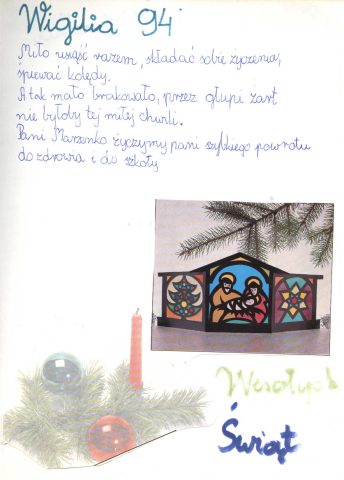 Wigilia 94
Miło usiąść razem, składać sobie życzenia,
śpiewać kolędy.
A tak mało brakowało, przez głupi żart
nie byłoby tej miłej chwili.
Pani Marzenko życzymy pani szybkiego powrotu
do zdrowia i do szkoły
Wesołych
Świąt